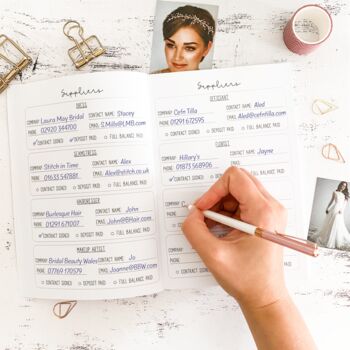 Suppliers
DRESS
COMPANY Laura May Bridal CONTACT NAME Stacey
PHONE 02920 344700 EMAIL S.Mills@LMB.com
CONTRACT SIGNED DEPOSIT PAID FULL BALANCE PAID
SEAMSTRESS
COMPANY Stitch in Time CONTACT NAME Alex
PHONE 01633 547881 EMAIL
CONTRACT SIGNED DEPOSIT PAID FULL BALANCE PAID
HAIRDRESSER
COMPANY Burlesque Hair CONTACT NAME John
PHONE 01291 671007 EMAIL John@BHair
CONTRACT SIGNED DEPOSIT PAID FULL BALANCE PAID
MAKEUP ARTIST
COMPANY Bridal Beauty Wales CONTACT NAME Jo
PHONE 07769 170579 EMAIL Joanne@BBW.com
CONTRACT SIGNED DEPOSIT PAID FULL BALANCE PAID
Suppliers
OFFICIANT
COMPANY Cefn Tilla CONTACT NAME Aled
PHONE 01291 672595 EMAIL Aled@Cefntilla.com
CONTRACT SIGNED DEPOSIT PAID FULL BALANCE PAID
FLORIST
COMPANY Hillary's CONTACT NAME Jayne
PHONE 01873 568906 EMAIL
CONTRACT SIGNED
COMPANY
PHONE